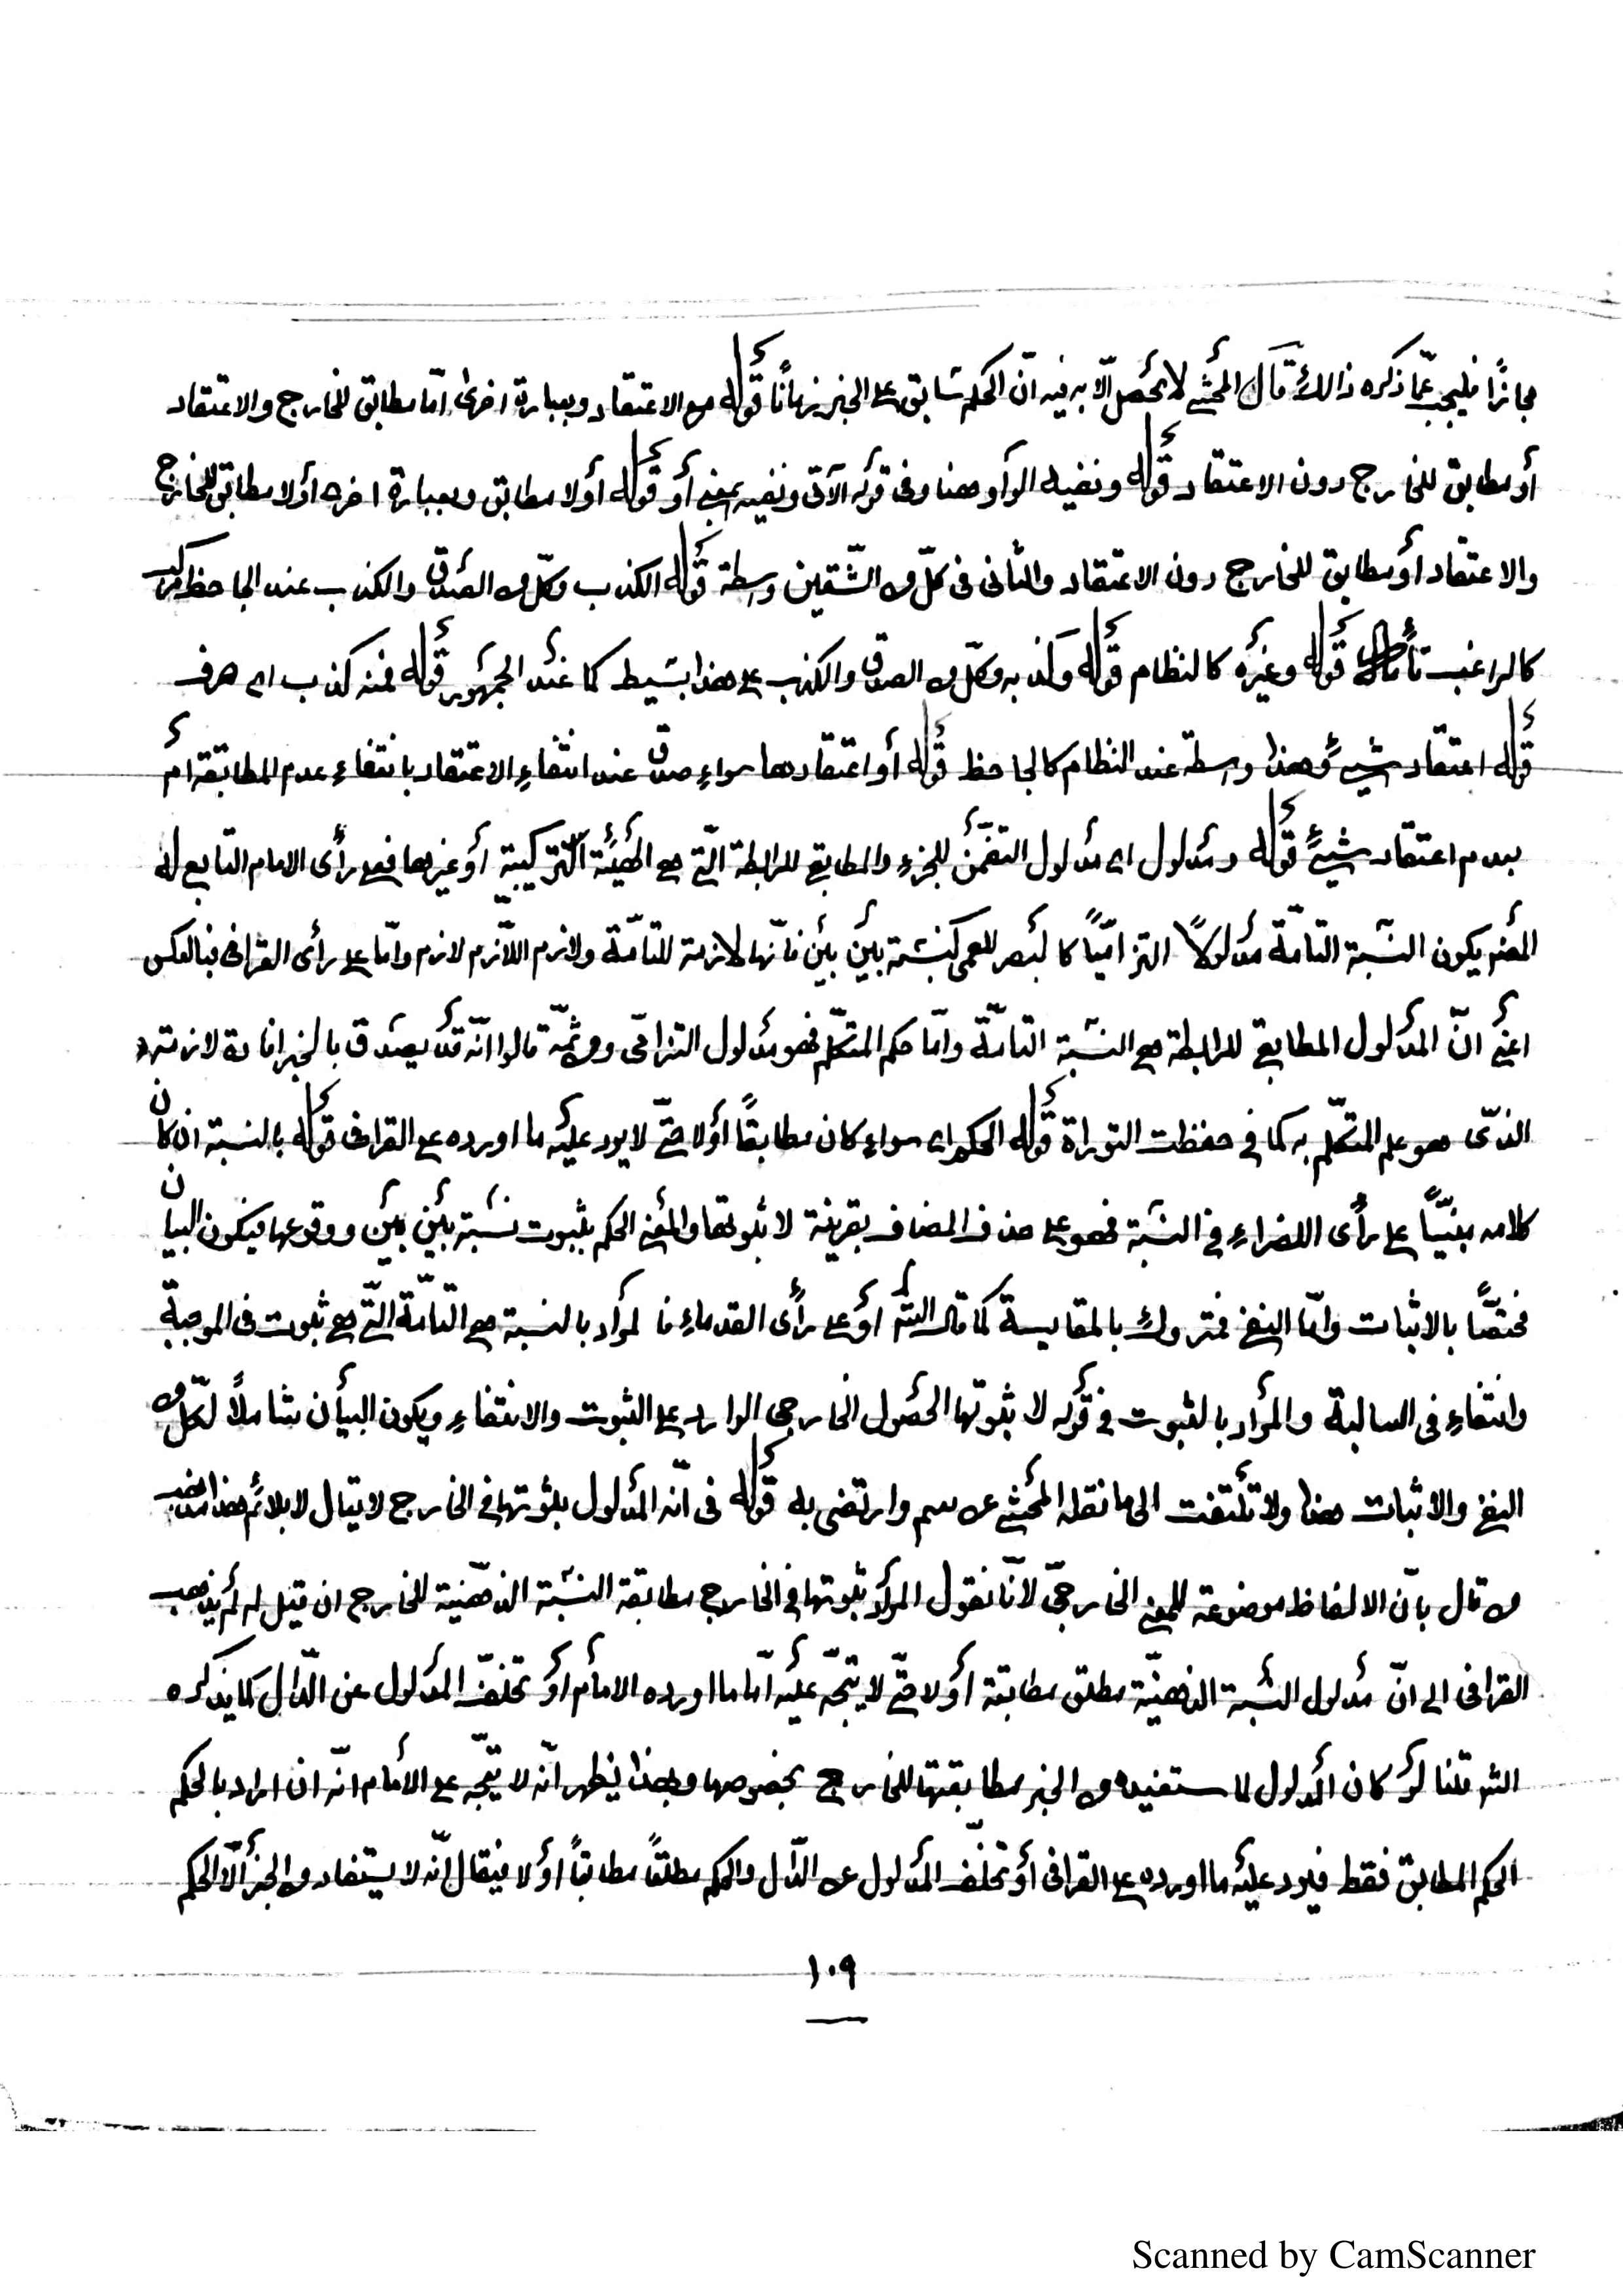 مجازًا فليجب عمّا ذكره ذالك قال المحشي لا يحصل الّا به فيه انّ الحكم سابق على الخبر زمانًا قوله مع الاعتقاد وبعبارة اخرى امّا مطابق للخارج والاعتقاد
أو مطابق للخارج دون الاعتقاد قوله ونفيه الواو هنا وفى قوله الآتى ونفيه بمعنى أو قوله أو لا مطابق وبعبارة اخرى أو لا مطابق للخارج
والاعتقاد أو مطابق للخارج دون الاعتقاد والثانى فى كلّ من الشّقين واسطة قوله الكذب وكلّ من الصدق والكذب عند الجاحظ مركب
كالراغب تأمل قوله وغيره كالنظام قوله وكذبه وكلّ من الصدق والكذب على هذا بسيط كما عند الجمهور قوله فمنه كذب اى صرف
قوله اعتقاد شيئ وهذا واسطة عند النظام كالجاحظ قوله أو اعتقاد عدمها سواء صدق عند انتفاء الاعتقاد بانتفاء عدم المطابقة أم
بعدم اعتقاد شيئ قوله ومدلول اى مدلول التضمّن للجزء والمطابق للرابطة الّتى هى الهيئة التركيبية أو غيرها فعلى رأى الامام التابع له
المص يكون النسبة التامّة مدلولًا التزاميًّا كالبصر للعمى كنسبة بين بين فانّها لازمة للتامّة ولازم اللّازم لازم وامّا على رأى القرافى فبالعكس
اعنى انّ المدلول المطابقى للرابطة هى النسبة التامّة وامّا حكم المتكلّم فهو مدلول التزامّى ومن ثمّة قالوا انّه قد يصدق بالخبر افادة لازمته
الذّى هو علم المتكلّم به كما فى حفظت التوراة قوله الحكم اى سواء كان مطابقًا أو لا حتّى لا يرد عليه ما اورده على القرافى قوله بالنسبة ان كان
كلامه مبنيًّا على رأى القدماء فى النسبة فهو على حذف المضاف بقرينة لا ثبوتها والمعنى الحكم بثبوت نسبة بين بين ووقوعها فيكون البيان
مختصًّا بالاثبات وامّا النفى فمتروك بالمقايسة كما قال الش أو على رأى القدماء فالمراد بالنسبة هى التامّة الّتى هى ثبوت فى الموجبة
وانتفاء فى السالبة والمراد بالثبوت فى قوله لا ثبوتها الحصول الخارجى الوارد على الثبوت والانتفاء ويكون البيان شاملًا لكلّ من
النفى والاثبات هذا ولا تلتفت الى ما نقله المحشى عن سم وارتضى به قوله فى انّه المدلول بثبوتها فى الخارج لا يقال لا يلائم هذا مذهب
من قال بانّ الالفاظ موضوعة للمعنى الخارجىّ لانّا نقول المراد بثبوتها فى الخارج مطابقة النسبة الذهنية للخارج ان قيل لم لم يذهب
القرافى الى انّ مدلول النسبة الذهنيّة مطلق مطابقة أو لا حتّى لا يتّجه عليه امّا ما اورده الامام أو تخلّف المدلول عن الدّال كما يذكره
الش قلنا لو كان المدلول لا ستفيد من الخبر مطابقتها للخارج بخصوصها وبهذا يظهر انّه لا يتّجه على الامام انّه ان اراد بالحكم
الحكم المطابق فقط فيرد عليه ما اورده على القرافى أو تخلّف المدلول عن الدّال والحكم مطلقًا مطابقًا أو لا فيقال انّه لا يستفاد من الخبر الّا الحكم
١٠٩
Scanned by CamScanner